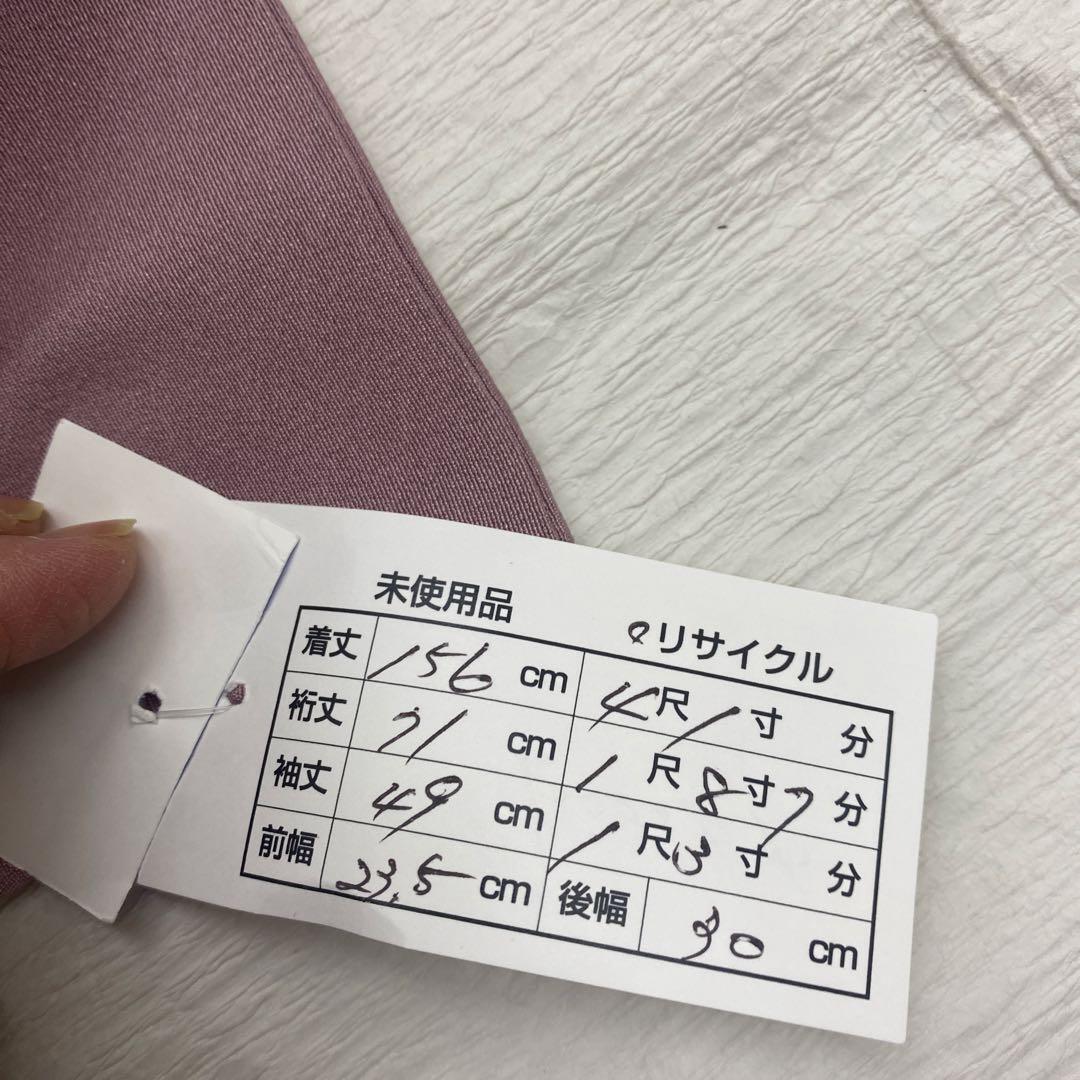 未使用品 リサイクル
着丈 156 cm 4尺1寸 分
裄丈 71 cm 1尺8寸7分
袖丈 49 cm 1尺3寸 分
前幅 23.5 cm 後幅 30 cm